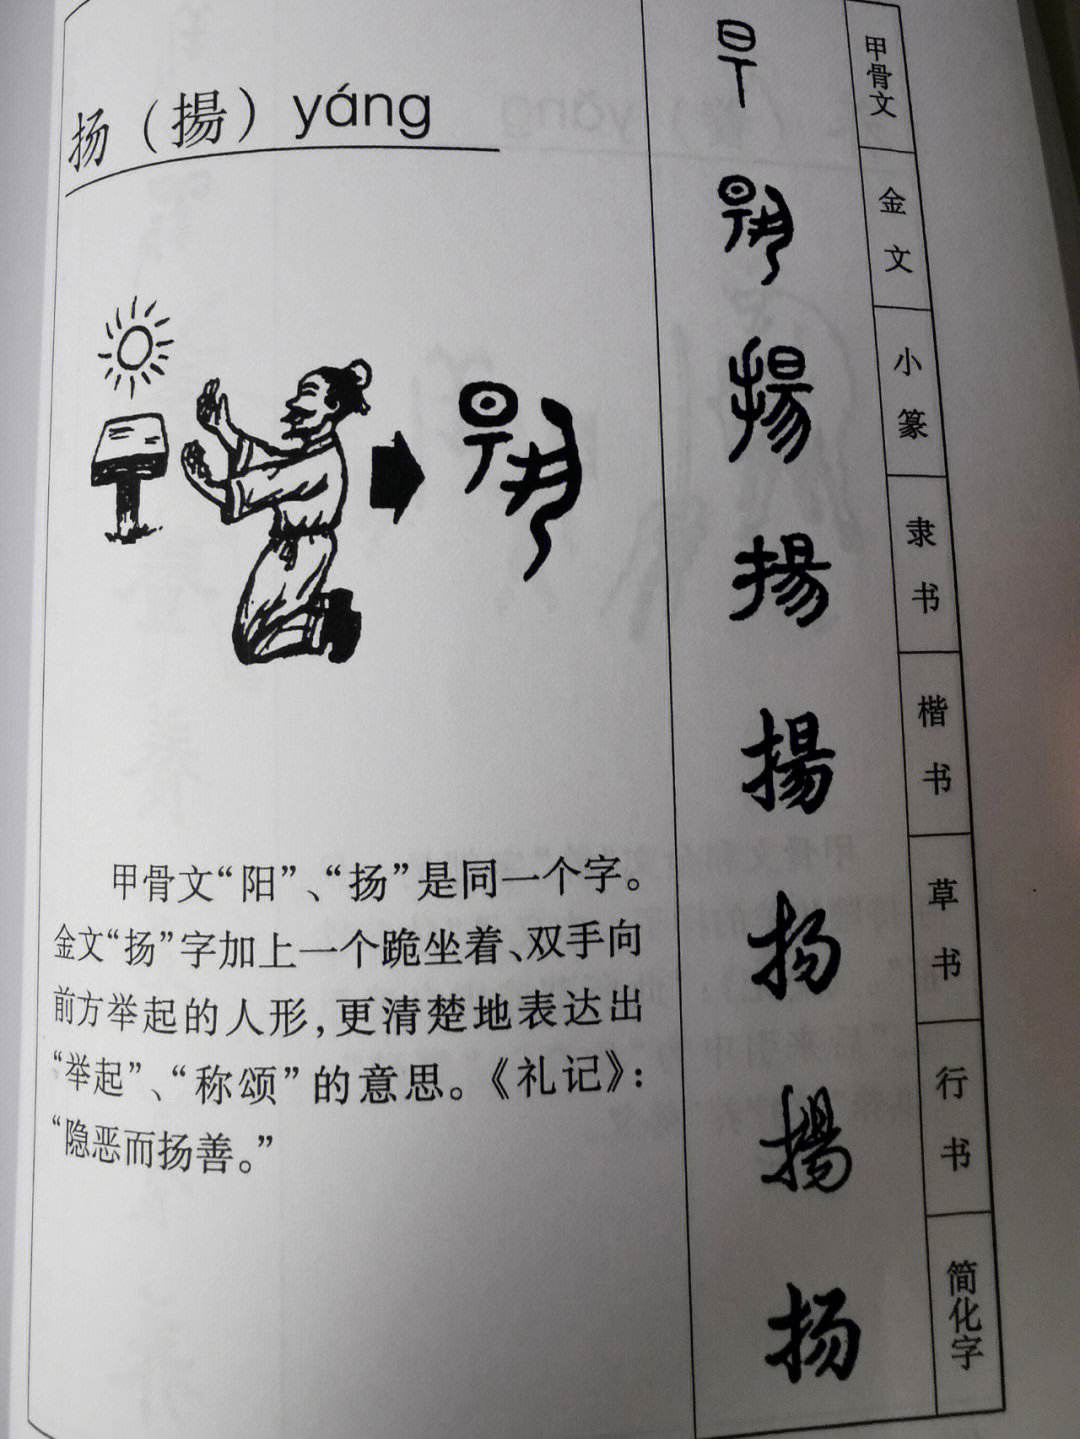 扬（揚）yáng
甲骨文“阳”、“扬”是同一个字。
金文“扬”字加上一个跪坐着、双手向
前方举起的人形，更清楚地表达出
“举起”、“称颂”的意思。《礼记》：
“隐恶而扬善。”
甲骨文
金文
小篆
揚
隶书
揚
楷书
揚
草书
扬
行书
揚
简化字
扬